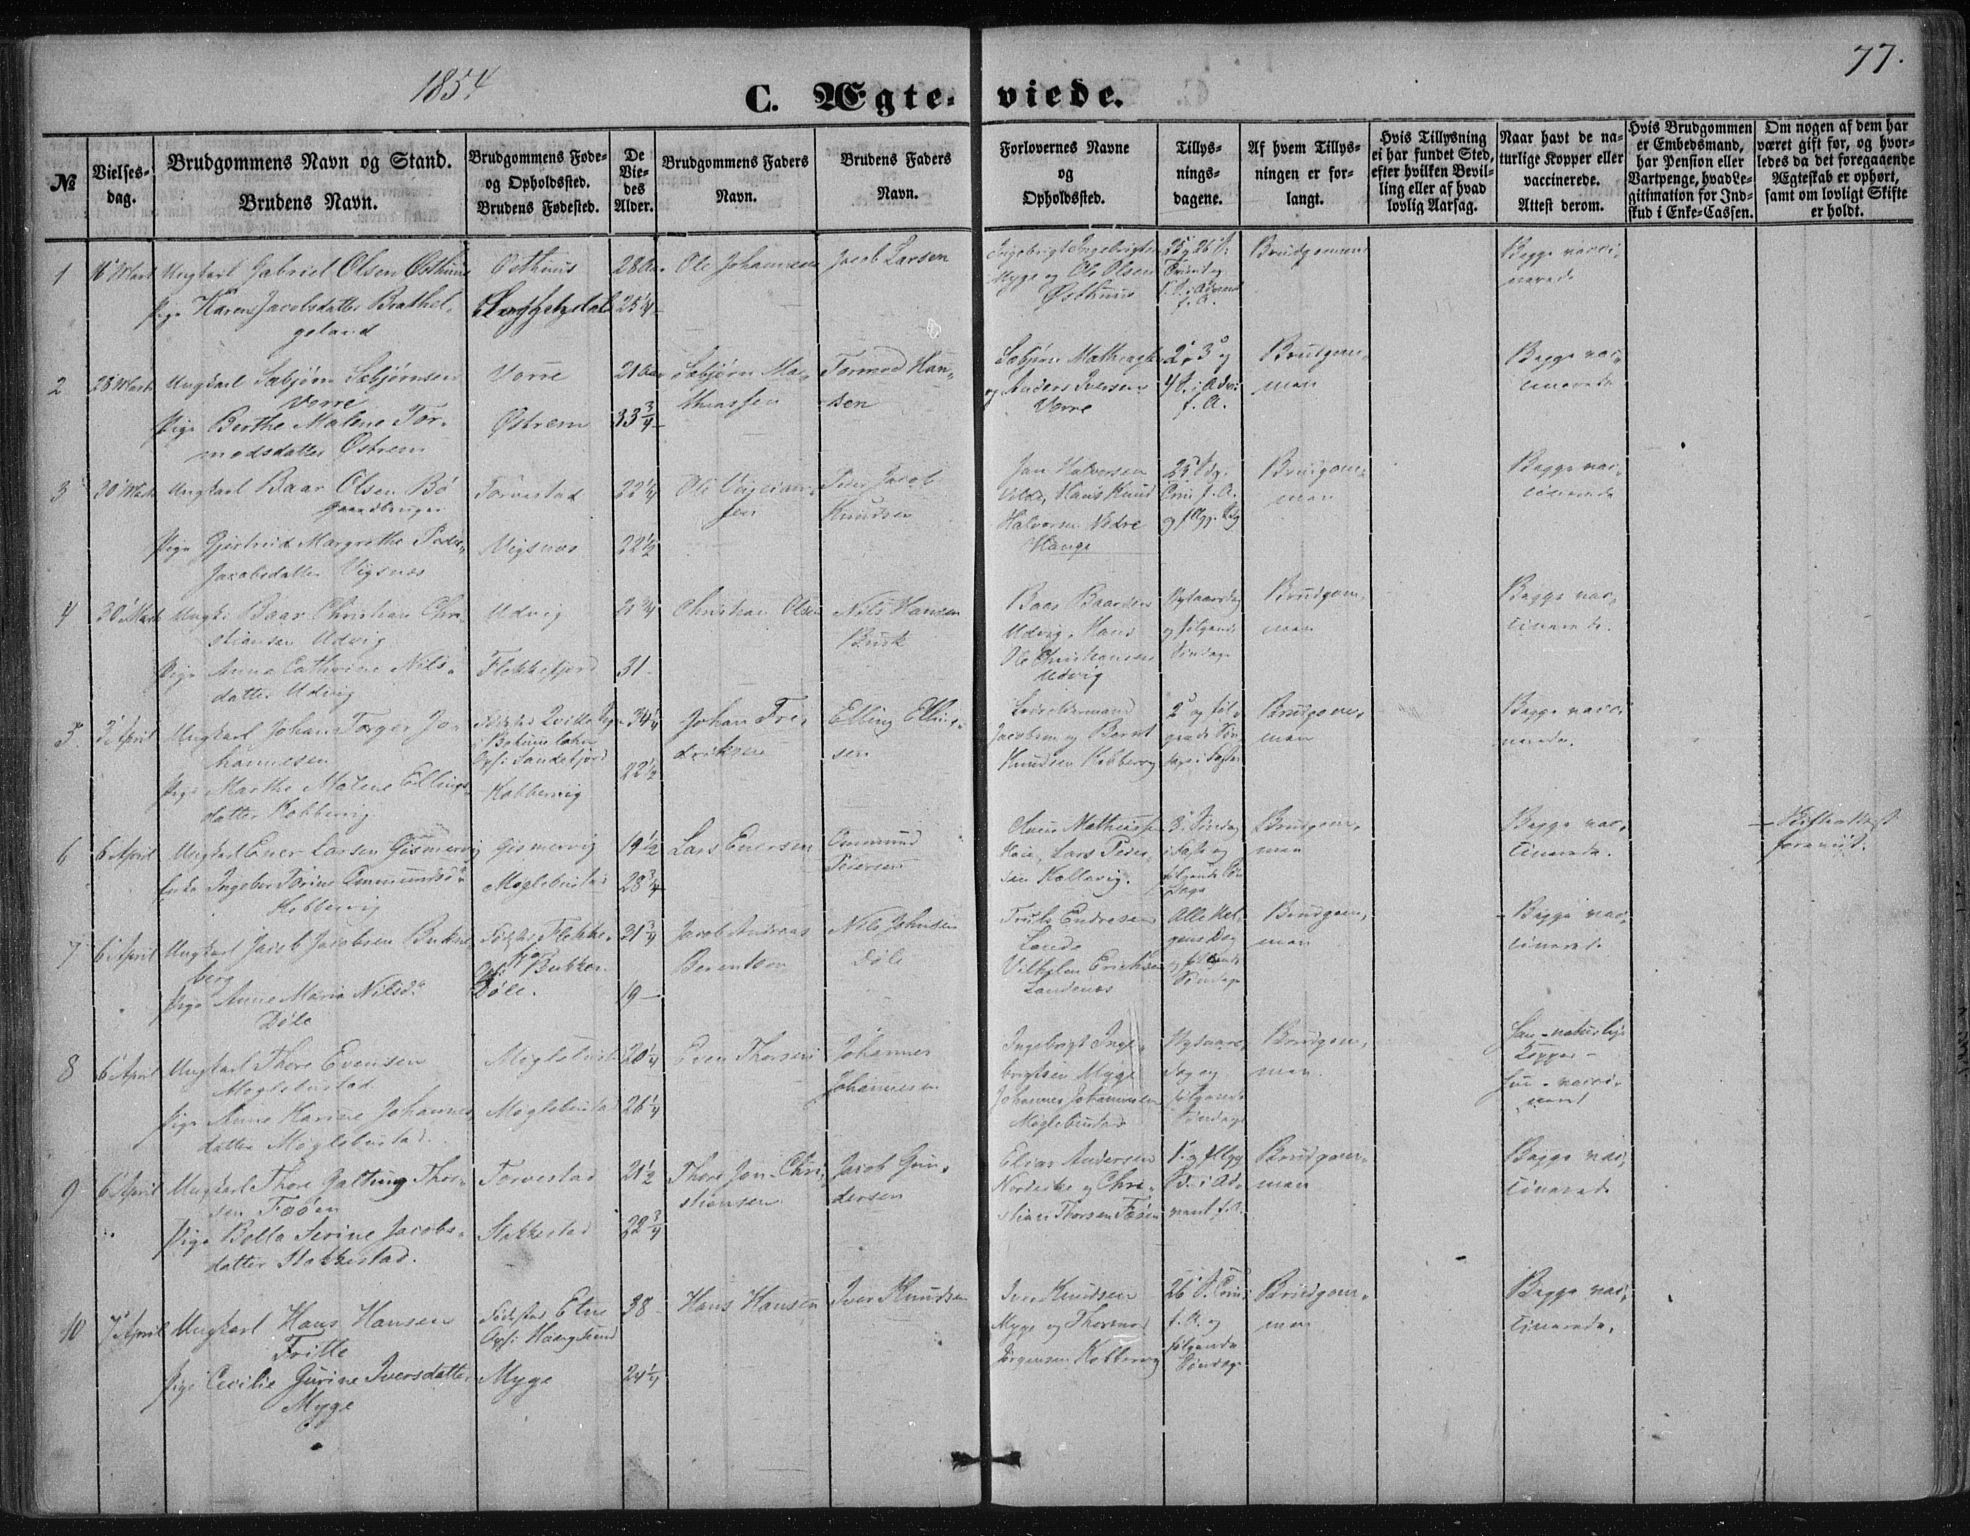 1854
77.
C. Ægte-viede.
№
Vielses-
dag.
Brudgommens Navn og Stand.
Brudens Navn.
Brudgommens Føde-
og Opholdssted.
Brudens Fødested.
De
Vie-
des
Alder.
Brudgommens Faders
Navn.
Brudens Faders
Navn.
Forlovernes Navne
og
Opholdssted.
Tillys-
nings-
dagene.
Af hvem Tillys-
ningen er for-
langt.
Hvis Tillysning
ei har fundet Sted,
efter hvilken Bevil-
ling eller af hvad
lovlig Aarsag.
Naar havt de na-
turlige Kopper eller
vaccinerede.
Attest derom.
Hvis Brudgommen
er Embedsmand,
har Pension eller
Vartpenge, hvad Le-
gitimation for Ind-
skud i Enke-Cassen.
Om nogen af dem har
været gift før, og hvor-
ledes da det foregaaende
Ægteskab er ophørt,
samt om lovligt Skifte
er holdt.
1
16 Marts
Ungkarl Gabriel Olsen Østhuus
Pige Karen Jacobsdatter Brathel-
geland
Østhuus
28 Aar
25 1/4
Ole Johannesen
Jacob Larsen
Ingebrigt Ingebrigtsen
Myge og Ole Olsen
Østhuus
Brudgommen
Begge vacci-
nerede
2
28 Marts
Ungkarl Sæbjørn Sæbjørnsen
Vorre
Pige Berthe Malene Tor-
modsdatter Østrem
Vorre
Østrem
21 Aar
33 3/4
Sæbjørn Ma-
thiassen
Tormod Han-
sen
Sæbjørn Mathiassen
og Anders Iversen
Vorre
2, 3 og
4 S. i Adv.
f. A.
Brudgom-
man
Begge vac-
cinerede
3
30 Marts
Ungkarl Baar Olsen Bø
Pige Gjertrud Margrethe Peder
Jacobsdatter Vigsnæs
Torvestad
Vigsnæs
22 1/4
22 1/2
Peder Jacob
Knudsen
Jan Halvorsen
Hans Knud
Halvorsen Nedre
Hauge
Brudgom-
man
Begge vac-
cinerede
4
30 Marts
Ungk. Baar Christian Chri-
stiansen Udvig
Pige Anna Cathrine Nils-
datter Udvig
Udvig
Flekkefjord
21 3/4
31
Christian Olsen
Nils Hansen
Busk
Baar Baardsen
Udvig, Hans
Ole Christiansen
Udvig
Nytaarsdag
og følgende
Søndage
Brudgom-
man
Begge vac-
cinerede.
5
2 April
Ungkarl Johan Torger Jo-
hannesen
Pige Marthe Malene Ellings-
datter Kobbervig
Kobbervig
34 1/4
22 1/2
Johan Fre-
driksen
Elling Elling-
sen
Jacobsen og Berent
Knudsen Kobbervig
2 og føl-
gende Søn-
dage i Faste
Brudgom-
man
Begge vacci-
nerede.
6
6 April
Ungkarl Ener Larsen Gismervig
Enke Ingeber Torine Ommundsd.
Kobbervig
Gismervig
Moglebustad
19 1/2
28 3/4
Lars Enersen
Ommund
Pedersen
Lars Peder-
sen Kollevig.
3 Søndag
i Faste og
følgende Søn-
dage
Brudgom-
man
Begge vac-
cinerede.
Skifteattest
forevist.
7
6 April
Ungkarl Jacob Jacobsen Bukke-
berg
Pige Anne Maria Nilsd.
Døle
Døle.
21 3/4
19
Jacob Andreas
Berentsen
Nils Johnsen
Døle
Truls Endresen
Lande
Vilhelm Eriksen
Landenæs
Alle Hel-
gens Dag
og følgende
Søndage
Brudgom-
man
Begge vac-
cinerede
8
6 April
Ungkarl Thore Evensen
Moglebustad
Pige Anne Karine Johannes-
datter Moglebustad.
Moglebustad
Moglebustad
20 1/4
26 1/4
Even Thorsen
Johannes
Johannesen
Ingebrigt Inge-
brigtsen Myge
Johannes Johannesen
Moglebustad
Nytaars-
dag og
følgende
Søndage
Brudgom-
man
Han - naturlige
Kopper -
Hun - vacci-
neret
9
6 April
Ungkarl Thore Gatting Thor-
sen Fæøen
Pige Bolla Serine Jacobs-
datter Stokkestad.
Torvestad
Stokkestad
21 1/2
22 3/4
Thore Jon Chri-
stiansen
Jacob Gun-
dersen
Elias Andersen
Nordeike og Chri-
stian Thorsen Fæøen
1 og flgg
S. i Ad-
vent f. A.
Brudgom-
man
Begge vac-
cinerede
10
7 April
Ungkarl Hans Hansen
Tritte
Pige Cecilie Gurine Iversdatter
Myge
Fødested Etne
Opf: Haugesund
Myge
38
24 1/4
Hans Hansen
Iver Knudsen
Iver Knudsen
Myge og Thormod
Jørgensen Kobbervig
26 S. Trin.
f. A. og
følgende
Søndage
Brudgom-
man
Begge vac-
cinerede.